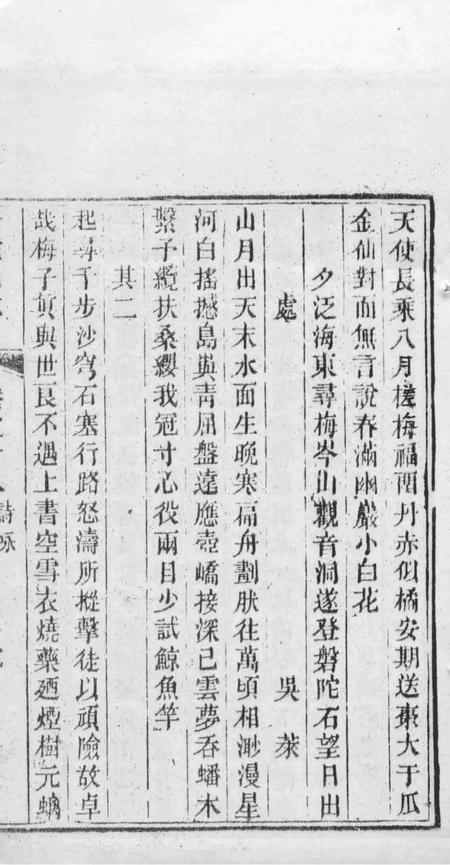 天使長乘八月槎梅福畱丹赤似橘安期送棗大于瓜
金仙對面無言說春滿幽巖小白花
夕泛海東尋梅岑山觀音洞遂登磐陀石望日出
處 吳萊
山月出天末水面生晚寒扁舟劃然往萬頃相渺漫星
河白搖撼島嶼青屈盤遠應壺嶠接深已雲夢吞蟠木
繫予纜扶桑纓我冠寸心役兩目少試鯨魚竿
其二
起尋千步沙穹石塞行路怒濤所摐擊徒以頑險故卓
哉梅子真與世良不遇上書空雪衣燒藥廼煙樹元螭
詩